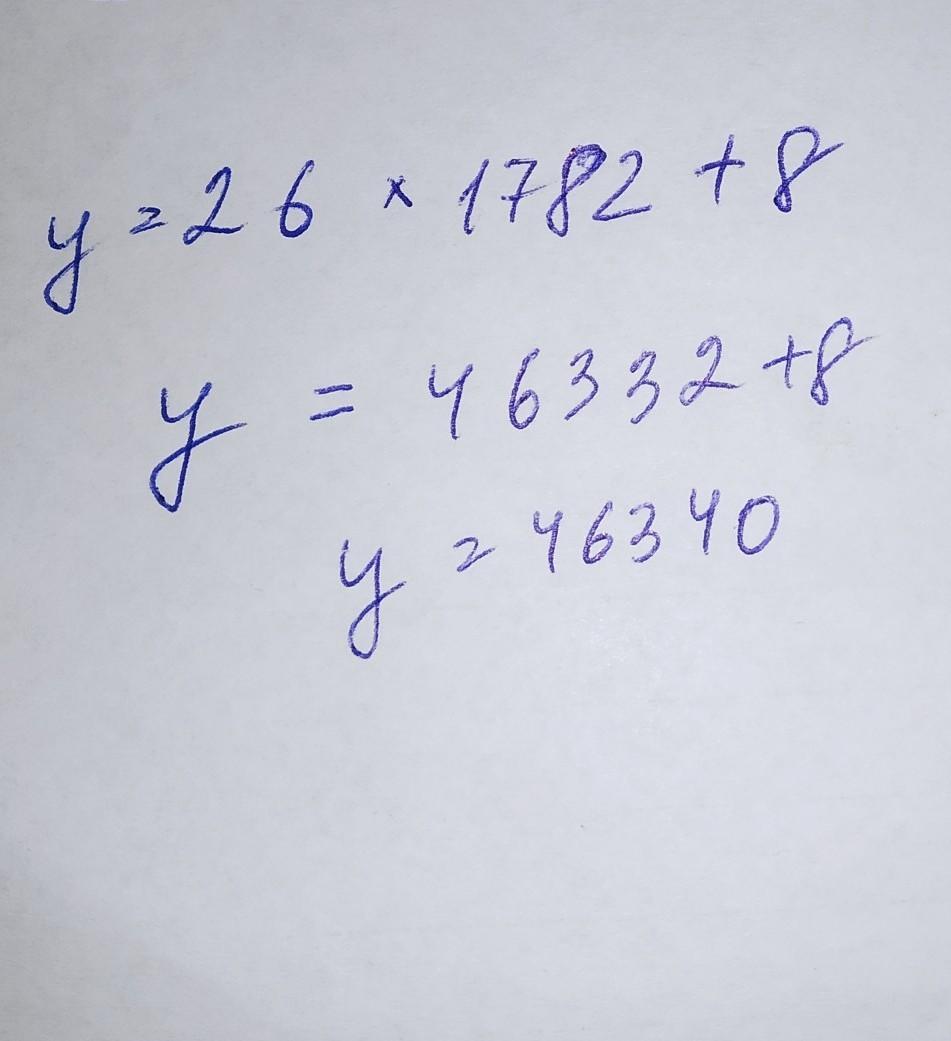 y = 26 × 1782 + 8
y = 46332 + 8
y = 46340